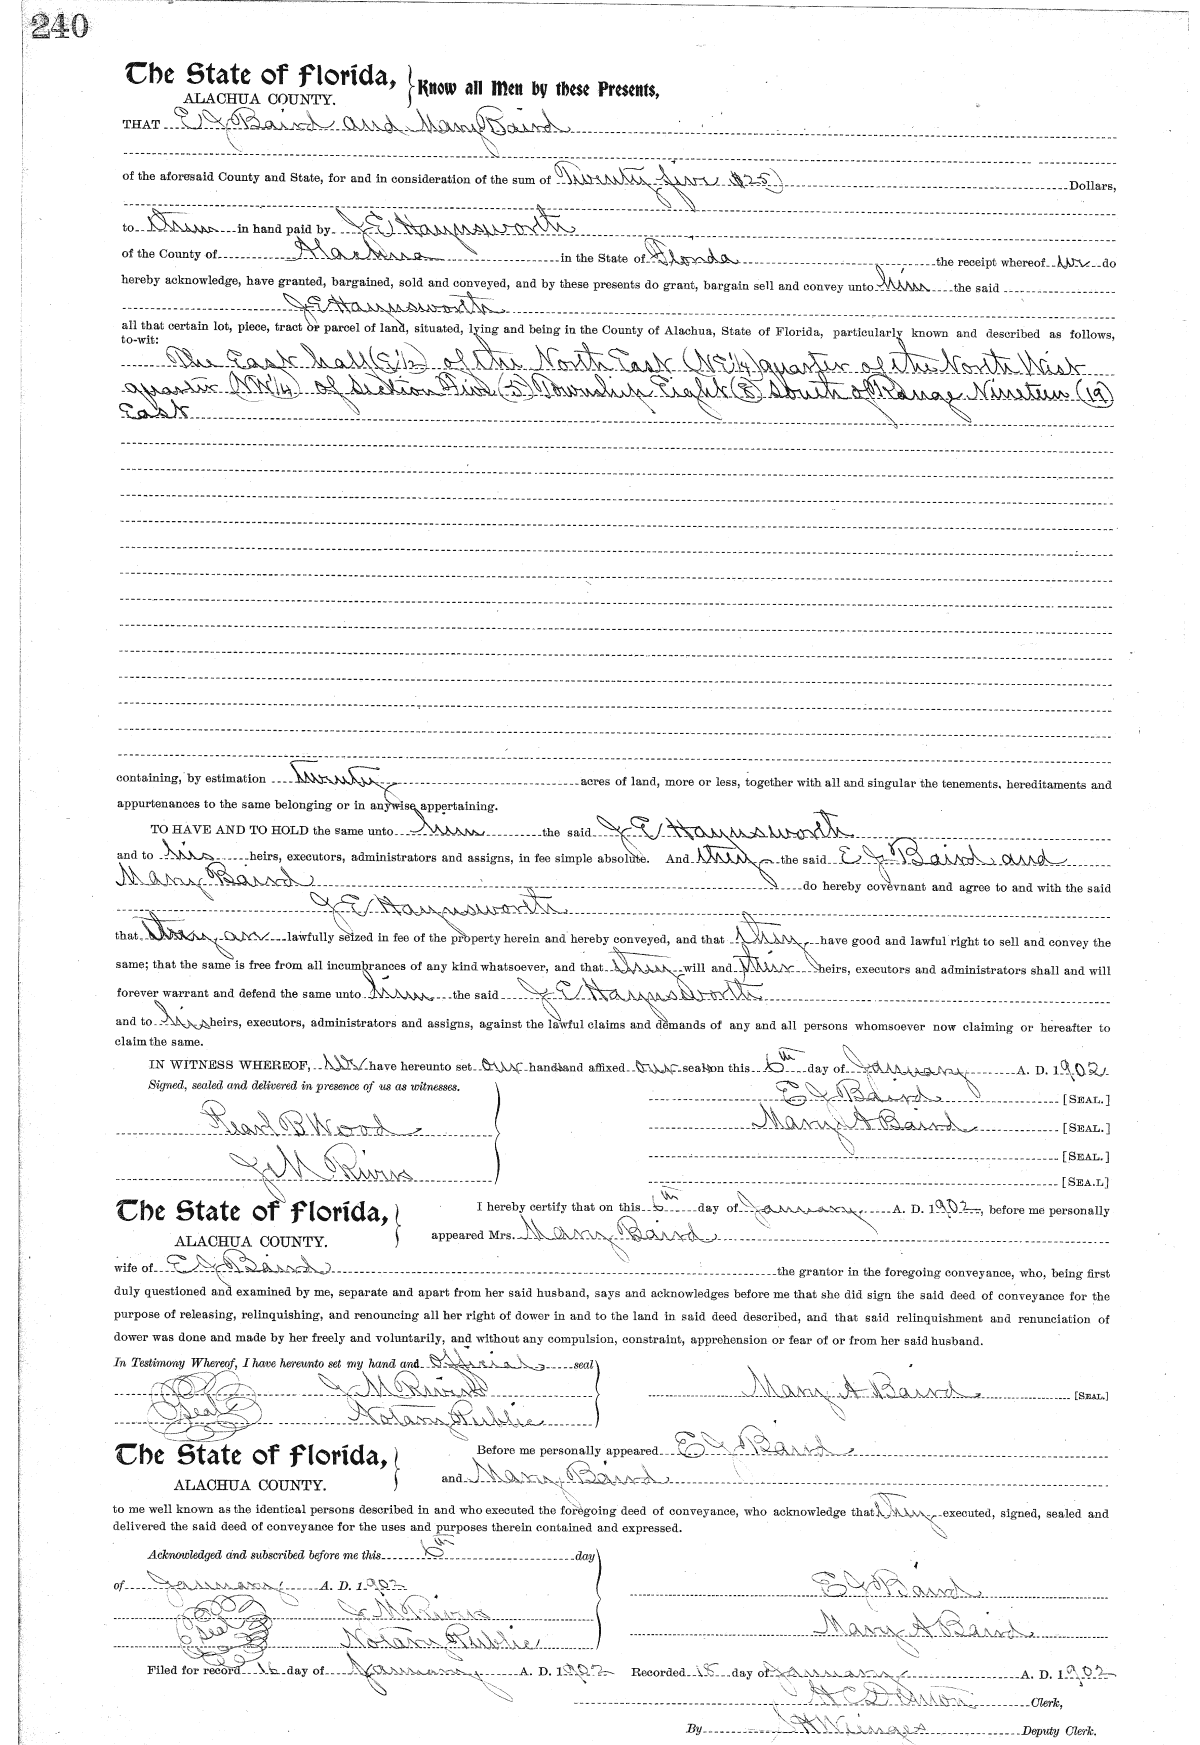 240
The State of Florida, Know all Men by these Presents,
ALACHUA COUNTY.
THAT E J Baird and Mary Baird
of the aforesaid County and State, for and in consideration of the sum of Twenty five $25) Dollars,
to them in hand paid by J E Haynsworth
of the County of Alachua in the State of Florida the receipt whereof we do
hereby acknowledge, have granted, bargained, sold and conveyed, and by these presents do grant, bargain sell and convey unto him the said
J E Haynsworth
all that certain lot, piece, tract or parcel of land, situated, lying and being in the County of Alachua, State of Florida, particularly known and described as follows,
to-wit:
The East half (E 1/2) of the North East (NE 1/4) quarter of the North West
quarter (NW 1/4) of Section Five (5) Township Eight (8) South of Range Nineteen (19)
East
containing, by estimation twenty acres of land, more or less, together with all and singular the tenements, hereditaments and
appurtenances to the same belonging or in anywise appertaining.
TO HAVE AND TO HOLD the same unto him the said J E Haynsworth
and to his heirs, executors, administrators and assigns, in fee simple absolute. And they the said E J Baird and
Mary Baird do hereby covevnant and agree to and with the said
J E Haynsworth
that they are lawfully seized in fee of the property herein and hereby conveyed, and that they have good and lawful right to sell and convey the
same; that the same is free from all incumbrances of any kind whatsoever, and that they will and their heirs, executors and administrators shall and will
forever warrant and defend the same unto him the said J E Haynsworth
and to his heirs, executors, administrators and assigns, against the lawful claims and demands of any and all persons whomsoever now claiming or hereafter to
claim the same.
IN WITNESS WHEREOF, We have hereunto set our hands and affixed our seals on this 6th day of January A. D. 1902
Signed, sealed and delivered in presence of us as witnesses. E J Baird [SEAL.]
Pearl B Wood Mary A Baird [SEAL.]
[SEAL.]
J M Rivers [SEA.L]
The State of Florida, I hereby certify that on this 6th day of January A. D. 1902, before me personally
ALACHUA COUNTY. appeared Mrs. Mary Baird
wife of E J Baird the grantor in the foregoing conveyance, who, being first
duly questioned and examined by me, separate and apart from her said husband, says and acknowledges before me that she did sign the said deed of conveyance for the
purpose of releasing, relinquishing, and renouncing all her right of dower in and to the land in said deed described, and that said relinquishment and renunciation of
dower was done and made by her freely and voluntarily, and without any compulsion, constraint, apprehension or fear of or from her said husband.
In Testimony Whereof, I have hereunto set my hand and official seal
J M Rivers Mary A Baird [SEAL.]
Seal Notary Public
The State of Florida, Before me personally appeared E J Baird
ALACHUA COUNTY. and Mary Baird
to me well known as the identical persons described in and who executed the foregoing deed of conveyance, who acknowledge that they executed, signed, sealed and
delivered the said deed of conveyance for the uses and purposes therein contained and expressed.
Acknowledged and subscribed before me this 6th day
of January A. D. 1902 E J Baird
J M Rivers
Seal Notary Public Mary A Baird
Filed for record 16 day of January A. D. 1902 Recorded 18 day of January A. D. 1902
H C Denton Clerk,
By Wienges Deputy Clerk.